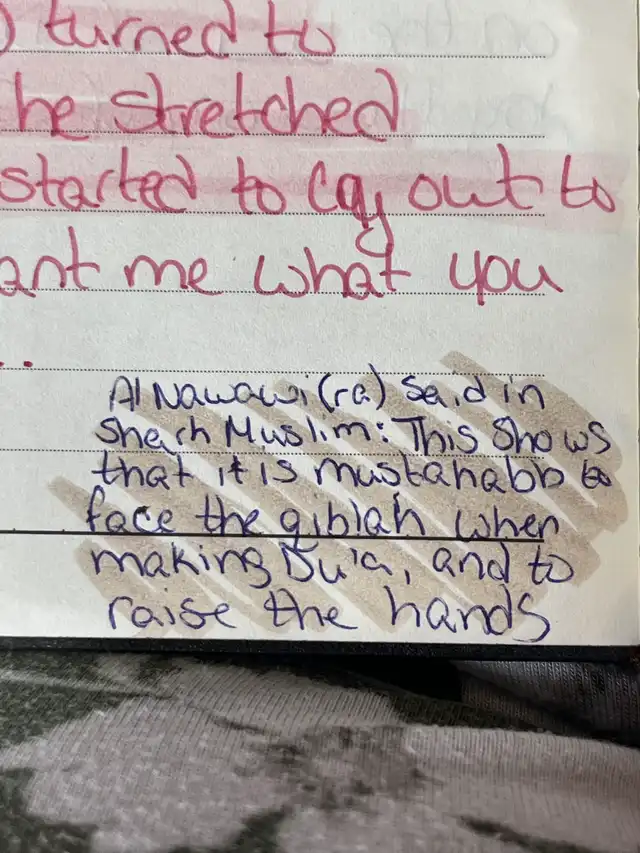 ) turned to
he stretched
started to cry out to
ant me what you
..
Al Nawawi (ra) Said in
Sharh Muslim: This Shows
that it is mustahabb to
face the qiblah when
making Du'a, and to
raise the hands